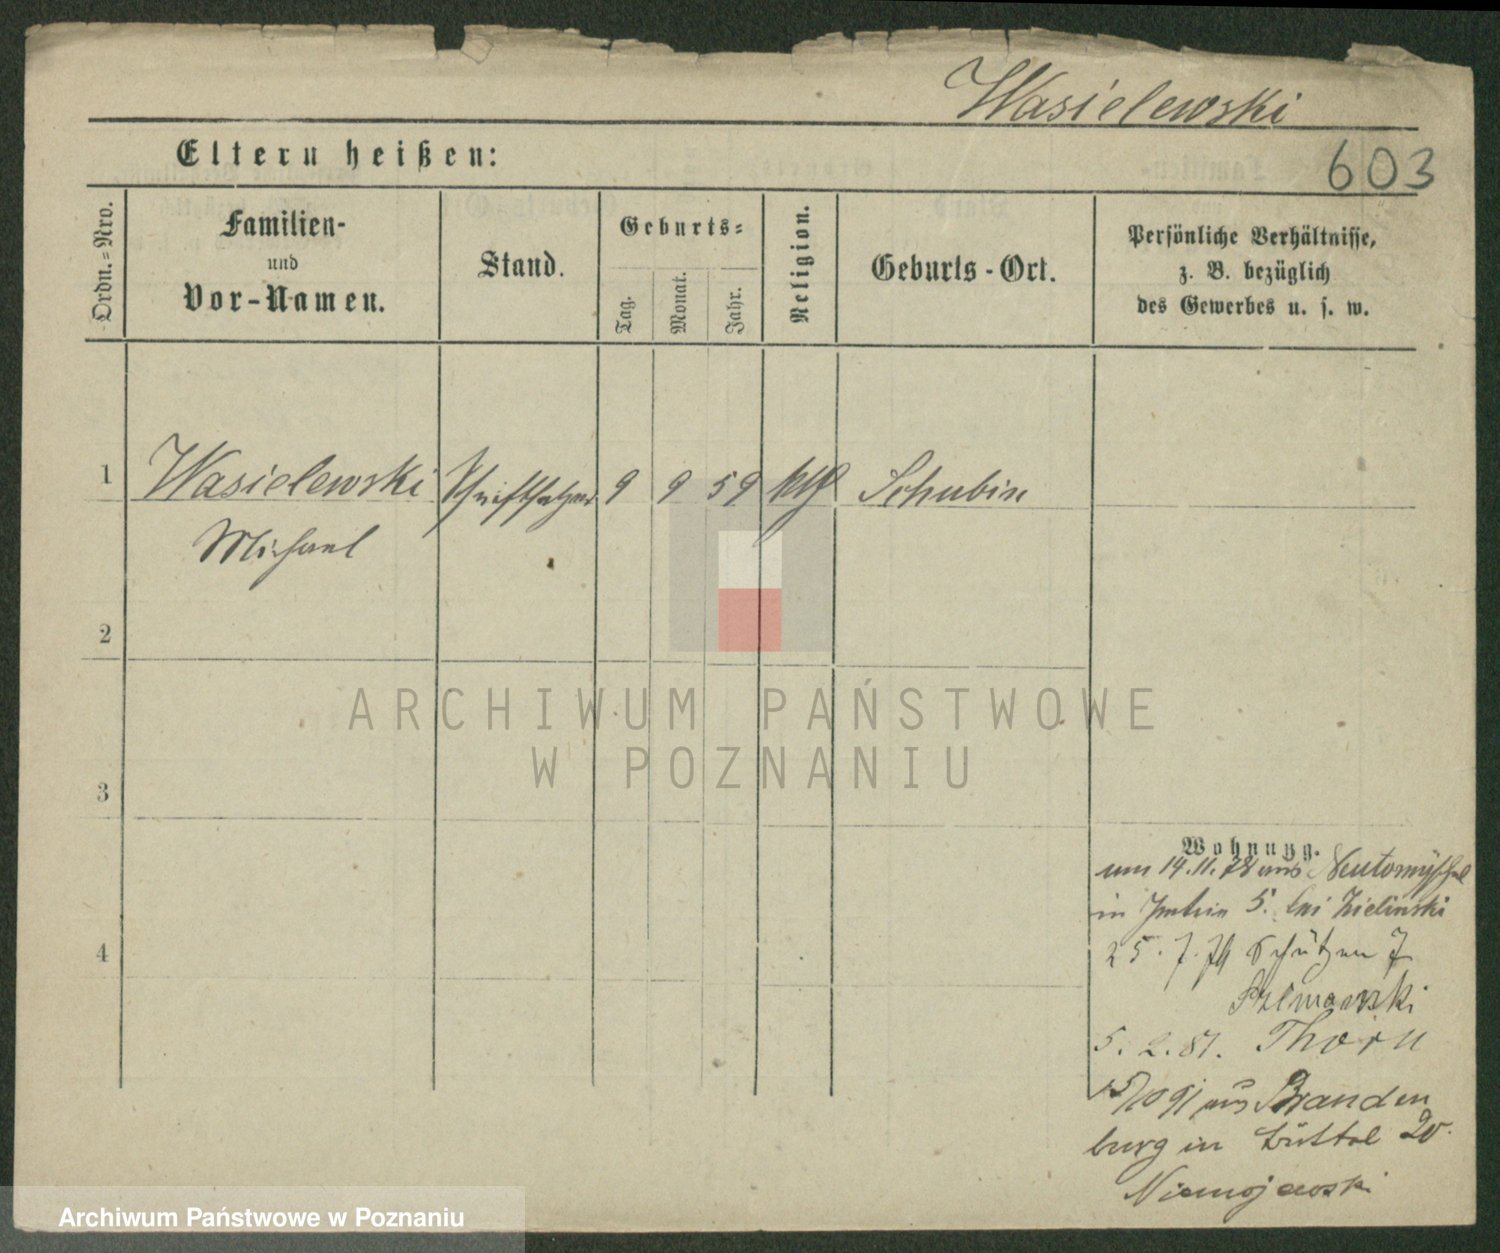 Wasielewski
Eltern heißen:
603
Ordn.=Nro.
Familien-
und
Vor-Namen.
Stand.
Geburts=
Tag.
Monat.
Jahr.
Religion.
Geburts-Ort.
Persönliche Verhältnisse,
z. B. bezüglich
des Gewerbes u. s. w.
1
Wasielewski Schriftsetzer 9 9 59 kth Schubin
Michael
2
3
4
Wohnung.
um 14.11.78 aus Neutomischel
in 5. bei Zielinski
25.7.79 Schützen 7
5.2.81. Thorn
91 aus Branden
burg in Büttel 20
Niemojewski
ARCHIWUM PAŃSTWOWE
W POZNANIU
Archiwum Państwowe w Poznaniu